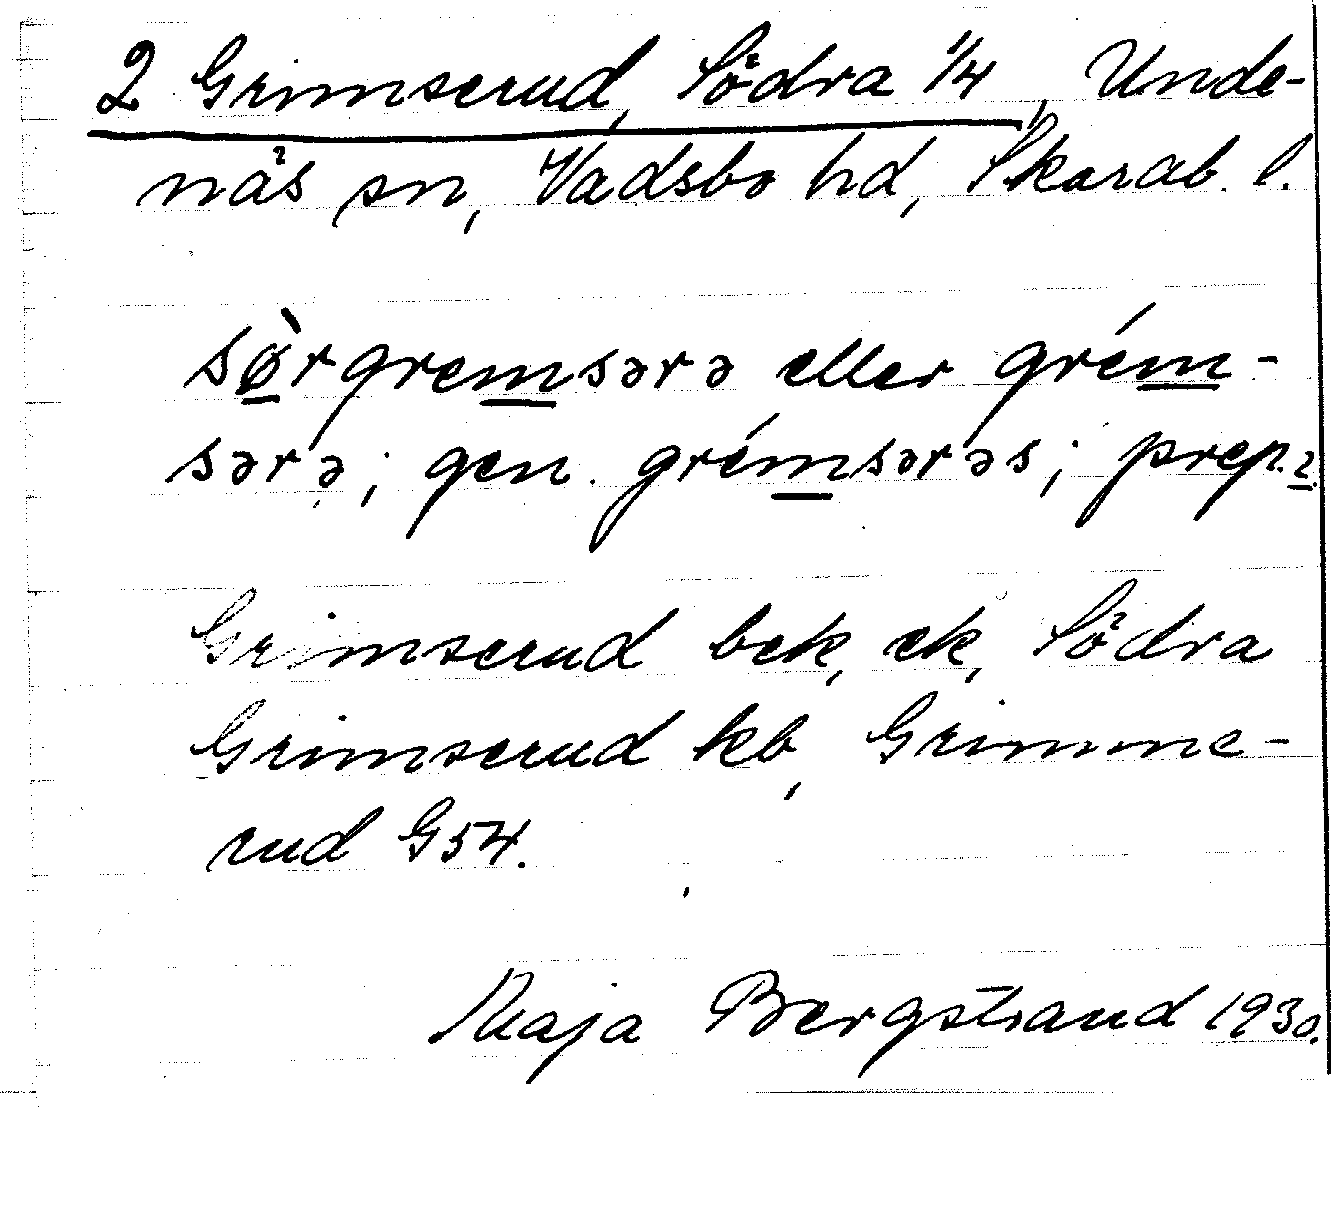 2 Grimserud, Södra 1/4, Unde-
näs sn, Vadsbo hd, Skarab. l.
sø̀rgremsərə eller grém-
sərə; gen. grémsərəs; prep. 2.
Grimserud bek, ek, Södra
Grimserud kb, Grimme-
rud G54.
Maja Bergstrand 1930.